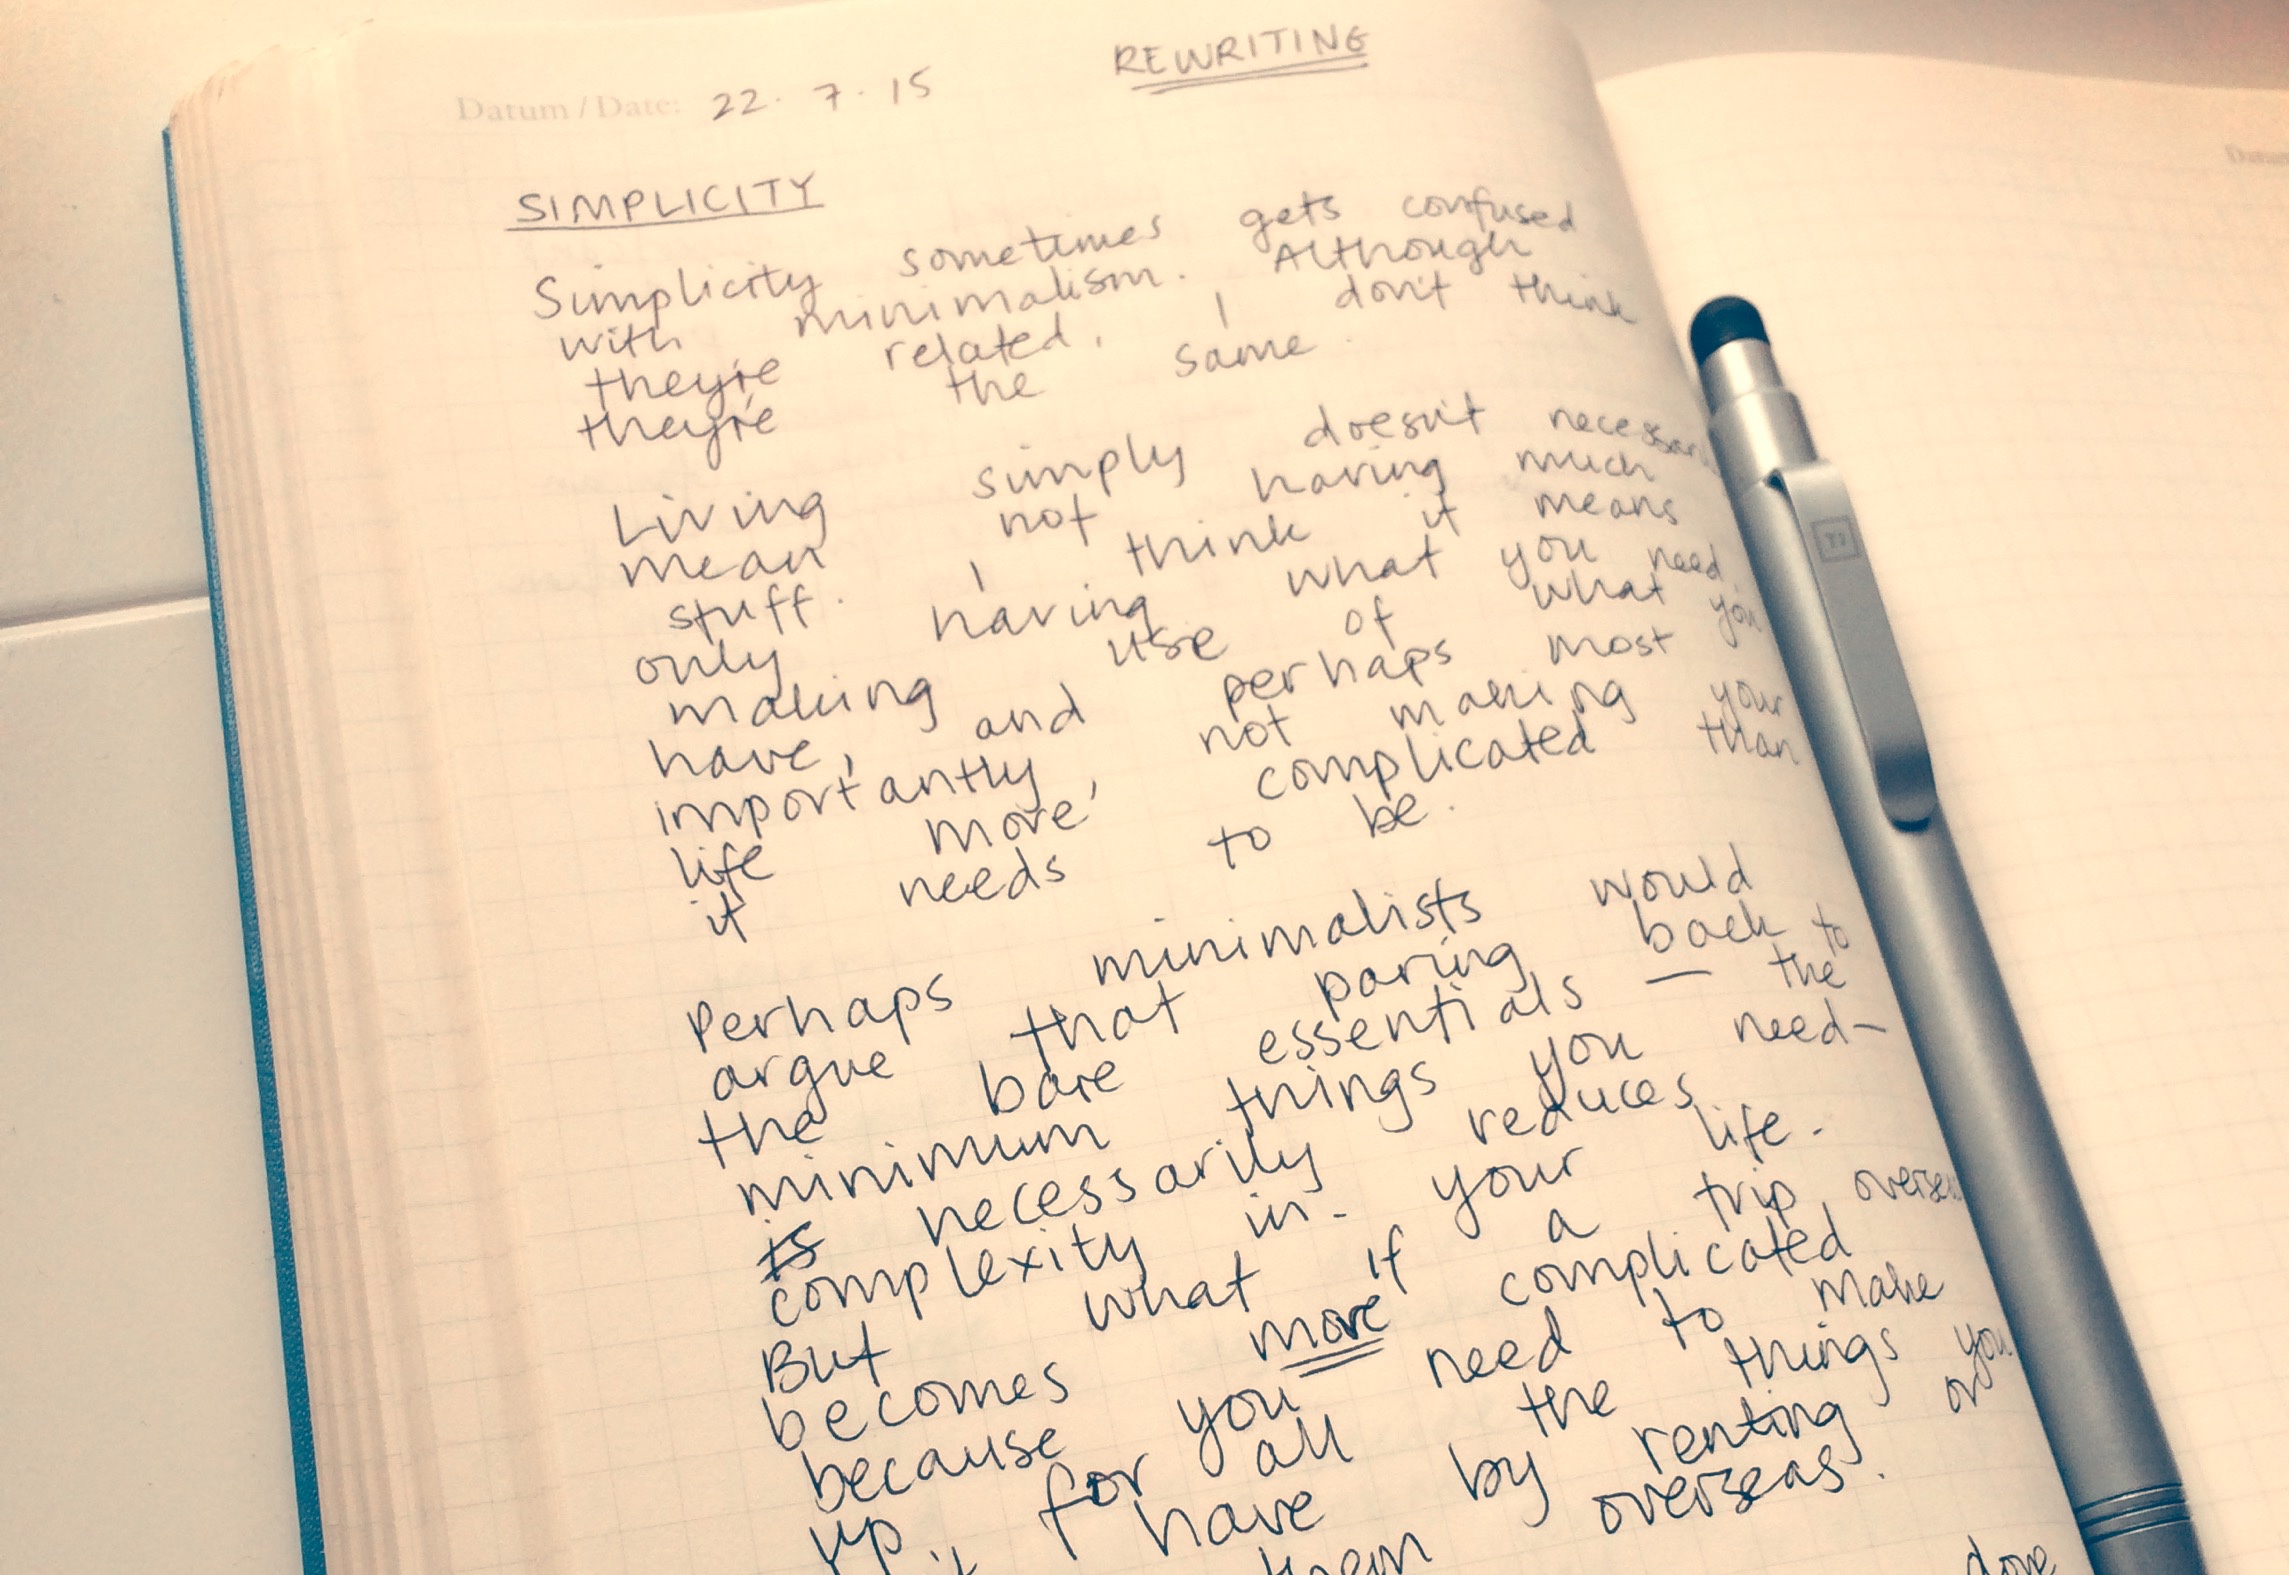 REWRITING
Datum / Date: 22. 7. 15
SIMPLICITY
Simplicity sometimes gets confused
with minimalism. Although
they're related, I don't think
they're the same.
Living simply doesn't necessari
mean not having much
stuff. I think it means
only having what you need,
making use of what you
have, and perhaps most
importantly, not making your
life more complicated than
it needs to be.
Perhaps minimalists would
argue that paring back to
the bare essentials — the
minimum things you need—
is necessarily reduces
complexity in your life.
But what if a trip overseas
becomes more complicated
because you need to make
up for all the things you
have by renting or
them overseas.
done